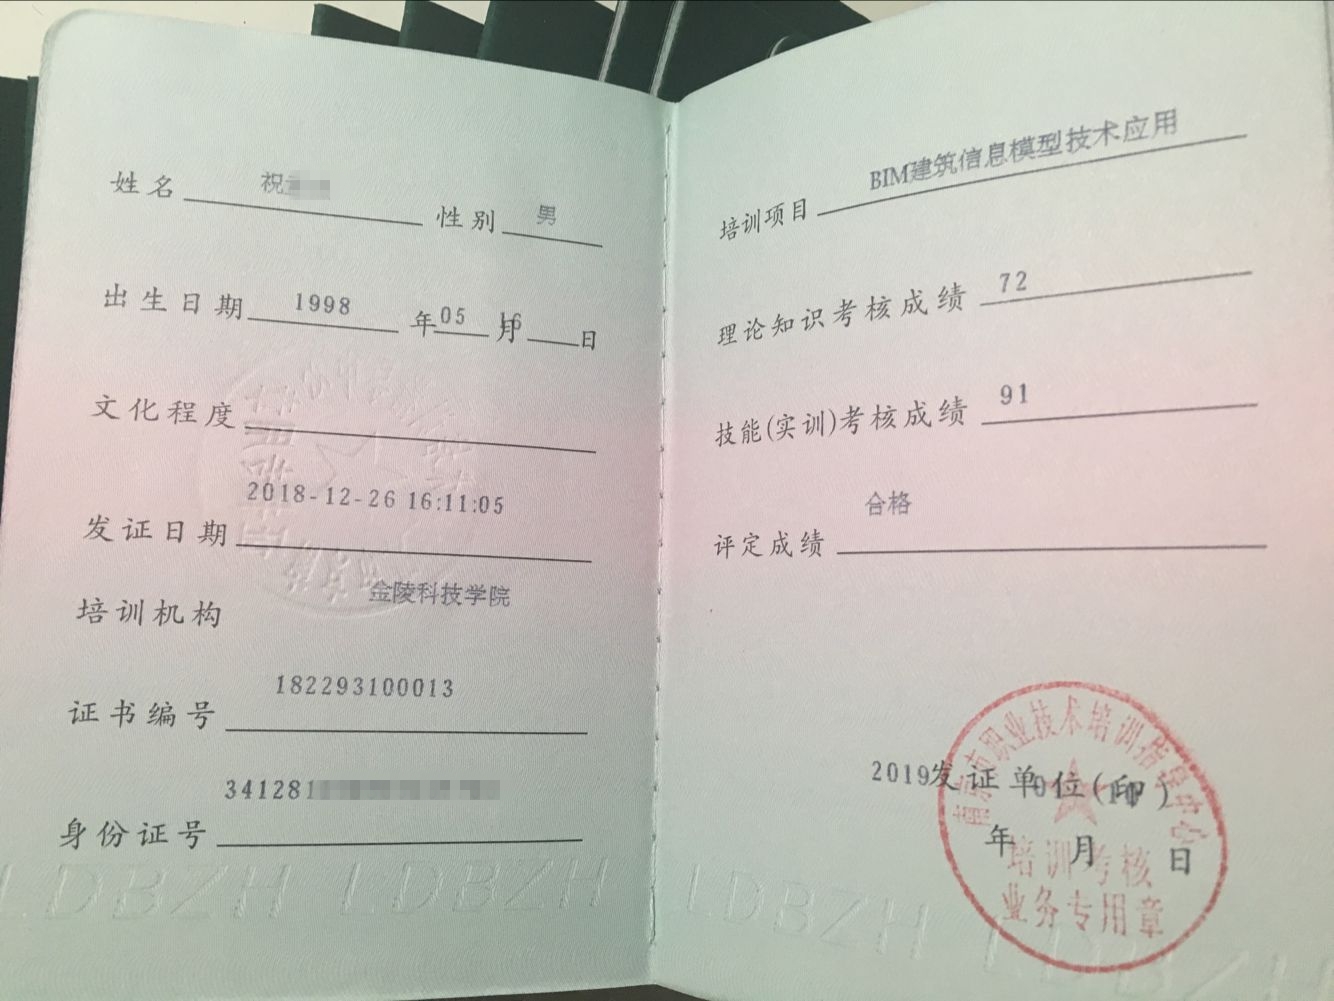 姓名 祝
性别 男
出生日期 1998 年 05 月 16 日
文化程度
发证日期 2018-12-26 16:11:05
培训机构 金陵科技学院
证书编号 182293100013
身份证号 341281
LDBZH LDBZH
培训项目 BIM建筑信息模型技术应用
理论知识考核成绩 72
技能(实训)考核成绩 91
评定成绩 合格
2019
发证单位(印)
年 月 日
南京市职业技术培训指导中心
培训考核
业务专用章
LDBZH LDBZH